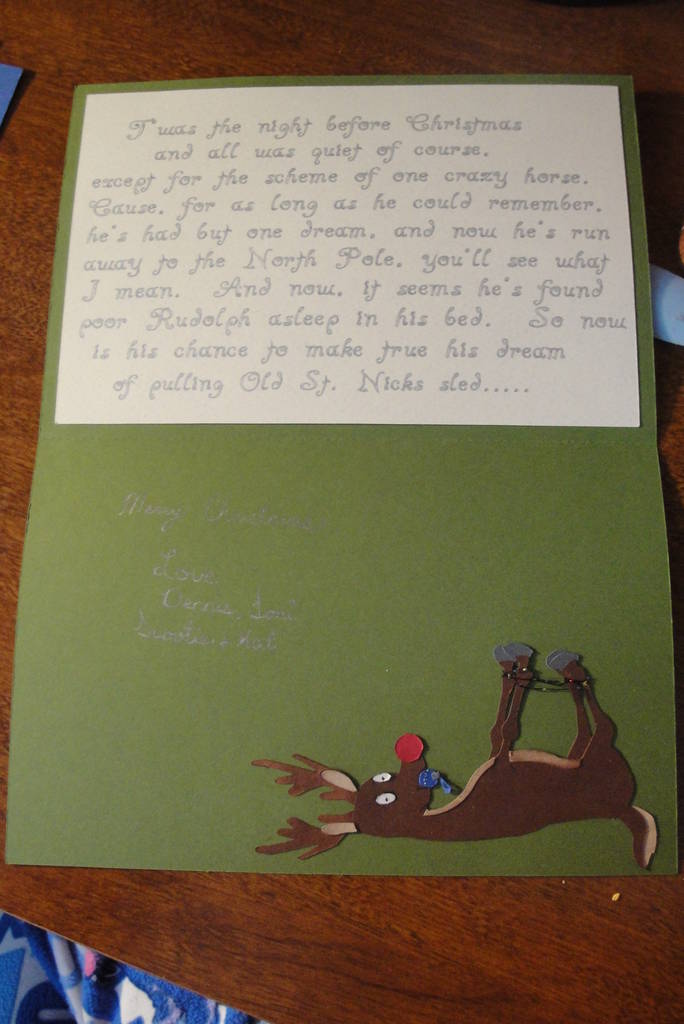 T'was the night before Christmas
and all was quiet of course.
except for the scheme of one crazy horse.
Cause, for as long as he could remember,
he's had but one dream, and now he's run
away to the North Pole, you'll see what
I mean. And now, it seems he's found
poor Rudolph asleep in his bed. So now
is his chance to make true his dream
of pulling Old St. Nicks sled.....
Merry Christmas
Love
Dennis,